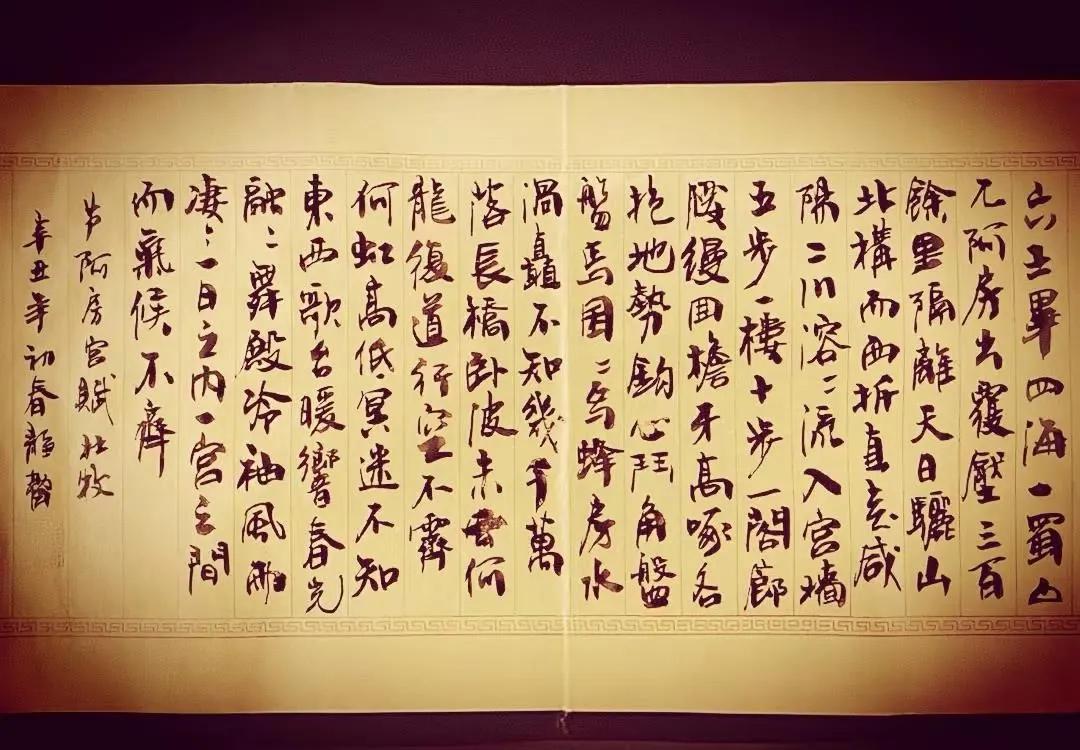 六王畢四海一蜀山
兀阿房出覆壓三百
餘里隔離天日驪山
北構而西折直走咸
陽二川溶〻流入宮墻
五步一樓十步一閣廊
腰縵回檐牙高啄各
抱地勢鈎心鬥角盤
盤焉囷〻焉蜂房水
渦矗不知幾千萬
落長橋卧波未雲何
龍復道行空不霽
何虹高低冥迷不知
東西歌台暖響春光
融〻舞殿冷袖風雨
凄〻一日之內一宮之間
而氣候不齊
阿房宮賦杜牧
辛丑年初春靜